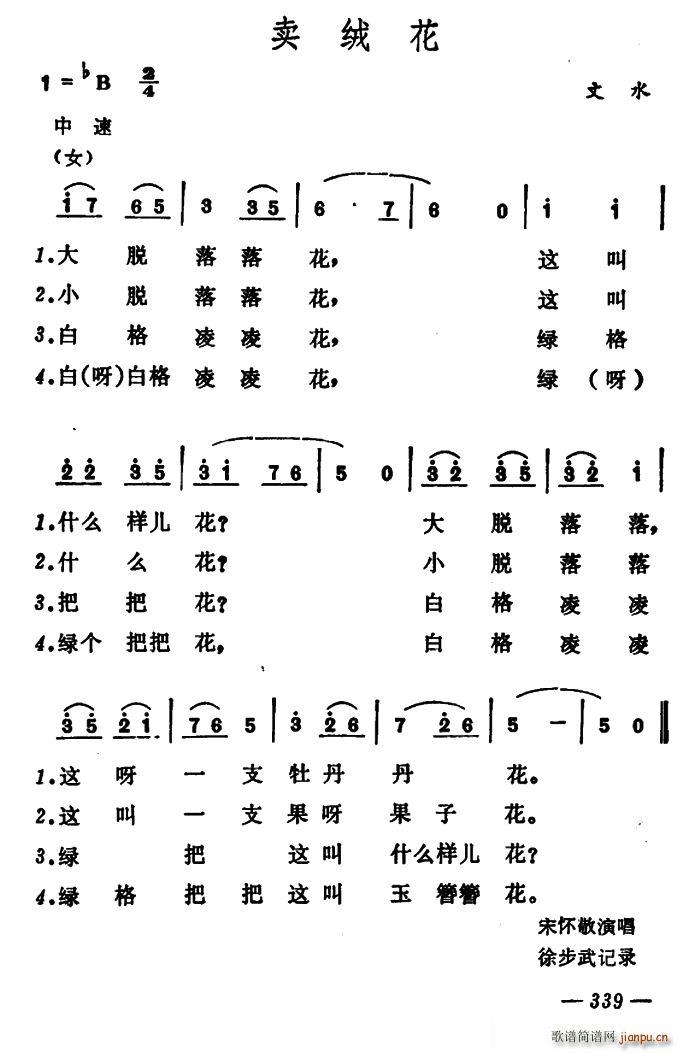 卖绒花
1=♭B 2/4 文水
中速
（女）
i̇7 65 | 3 35 | 6 · 7 | 6 0 | i̇ i̇ |
1.大脱落落花，这叫
2.小脱落落花，这叫
3.白格凌凌花，绿格
4.白(呀)白格凌凌花，绿(呀)
2̇2̇ 3̇5̇ | 3̇i̇ 76 | 5 0 | 3̇2̇ 3̇5̇ | 3̇2̇ i̇ |
1.什么样儿花？大脱落落，
2.什么花？小脱落落
3.把把花？白格凌凌
4.绿个把把花，白格凌凌
3̇5̇ 2̇i̇ | 76 5 | 3̇ 2̇6 | 7 2̇6 | 5 — | 5 0 ‖
1.这呀一支牡丹丹花。
2.这叫一支果呀果子花。
3.绿把这叫什么样儿花？
4.绿格把把这叫玉簪簪花。
宋怀敬演唱
徐步武记录
— 339 —
歌谱简谱网 jianpu.cn